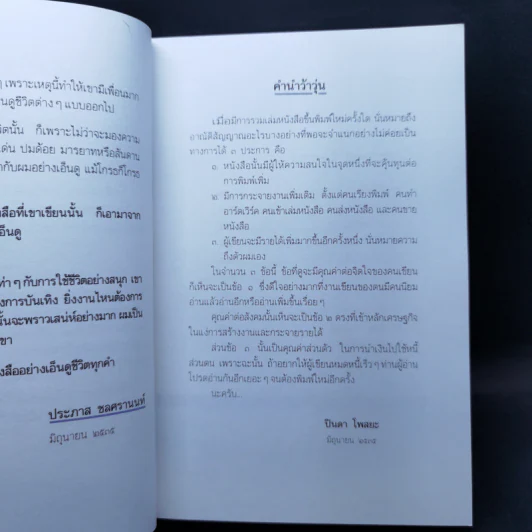 ๆ เพราะเหตุนี้ทำให้เขามีเพื่อนมาก
อ็นดูชีวิตต่าง ๆ แบบออกไป
ก็เพราะไม่ว่าจะมองความ
ปมด้อย มารยาทหรือสันดาน
ากับผมอย่างเอ็นดู แม้โกรธก็โกรธ
สือที่เขาเขียนนั้น ก็เอามาจาก
อ็นดู
ท่า ๆ กับการใช้ชีวิตอย่างสนุก เขา
งการบันเทิง ยิ่งงานไหนต้องการ
นั้นจะพราวเสน่ห์อย่างมาก ผมเป็น
ขา
สืออย่างเอ็นดูชีวิตทุกคำ
ประภาส ชลศรานนท์
มิถุนายน ๒๕๓๕
คำนำว้าวุ่น
เมื่อมีการรวมเล่มหนังสือขึ้นพิมพ์ใหม่ครั้งใด นั่นหมายถึง
อาณัติสัญญาณอะไรบางอย่างที่พอจะจำแนกอย่างไม่ค่อยเป็น
ทางการได้ ๓ ประการ คือ
๑. หนังสือนั้นมีผู้ให้ความสนใจในจุดหนึ่งที่จะคุ้มทุนต่อ
การพิมพ์เพิ่ม
๒. มีการกระจายงานเพิ่มเติม ตั้งแต่คนเรียงพิมพ์ คนทำ
อาร์ตเวิร์ค คนเข้าเล่มหนังสือ คนส่งหนังสือ และคนขาย
หนังสือ
๓. ผู้เขียนจะมีรายได้เพิ่มมากขึ้นอีกครั้งหนึ่ง นั่นหมายความ
ถึงตัวผมเอง
ในจำนวน ๓ ข้อนี้ ข้อที่ดูจะมีคุณค่าต่อจิตใจของคนเขียน
ก็เห็นจะเป็นข้อ ๑ ซึ่งดีใจอย่างมากที่งานเขียนของตนมีคนนิยม
อ่านแล้วอ่านอีกหรืออ่านเพิ่มขึ้นเรื่อย ๆ
คุณค่าต่อสังคมนั้นเห็นจะเป็นข้อ ๒ ตรงที่เข้าหลักเศรษฐกิจ
ในแง่การสร้างงานและกระจายรายได้
ส่วนข้อ ๓ นั้นเป็นคุณค่าส่วนตัว ในการนำเงินไปใช้หนี้
ส่วนตน เพราะฉะนั้น ถ้าอยากให้ผู้เขียนหมดหนี้เร็ว ๆ ท่านผู้อ่าน
โปรดอ่านกันอีกเยอะ ๆ จนต้องพิมพ์ใหม่อีกครั้ง
นะครับ
ปินดา โพสยะ
มิถุนายน ๒๕๓๕